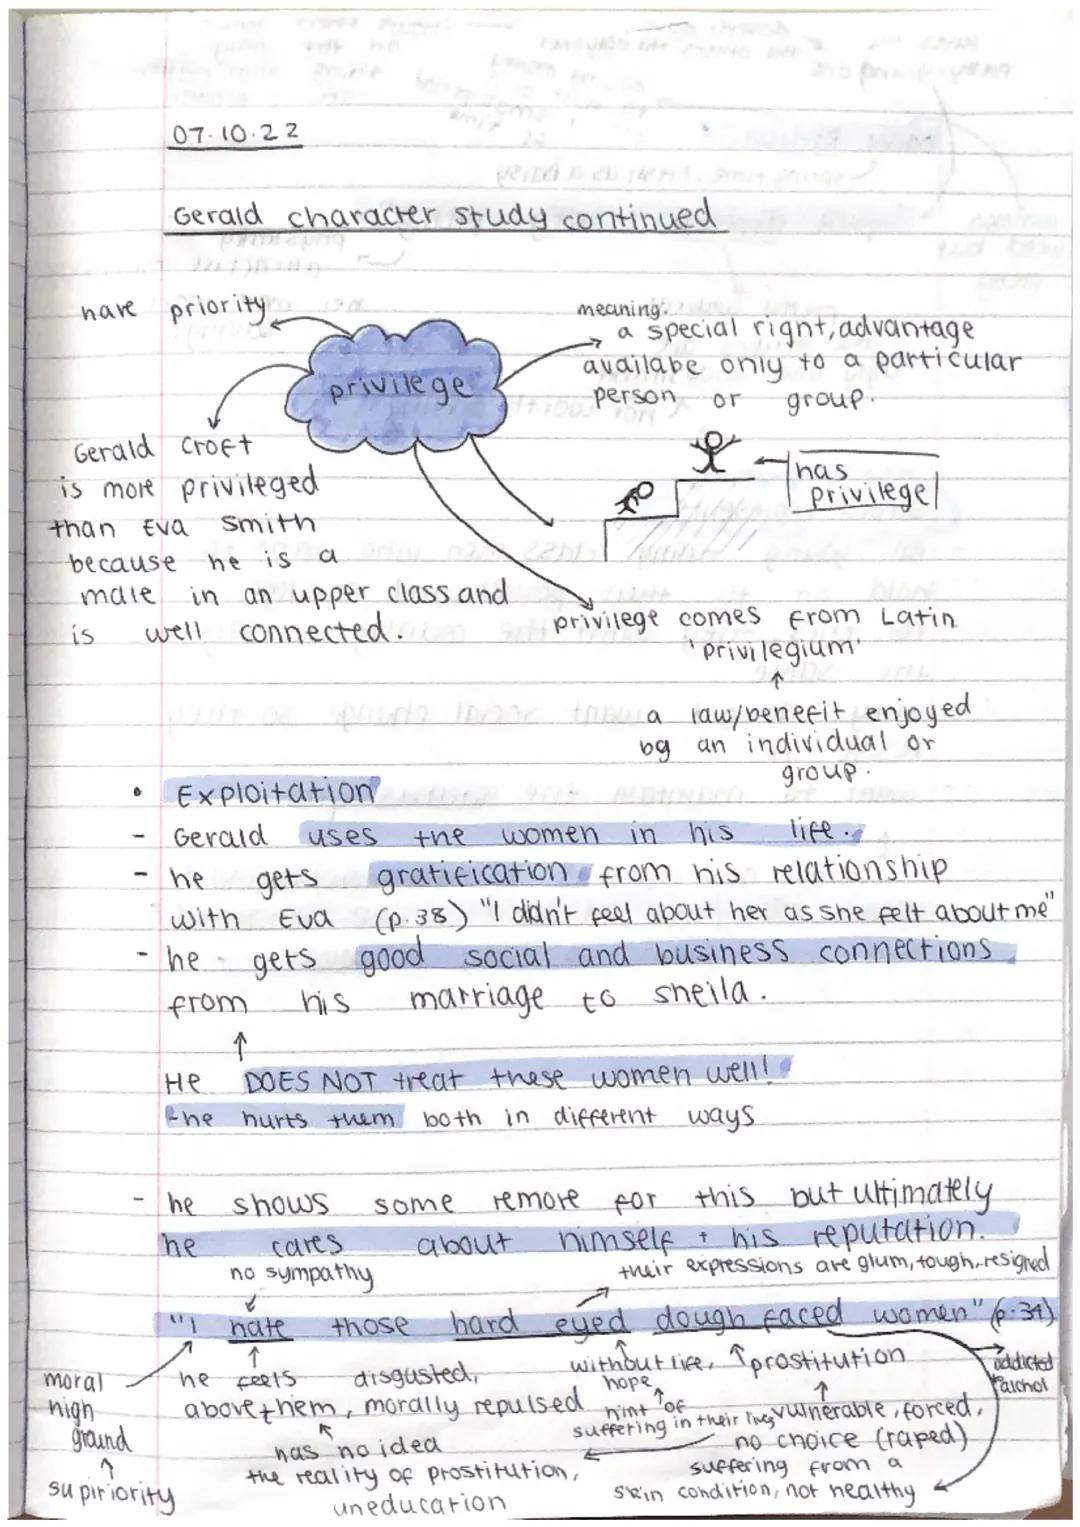 07.10.22
Gerald character study continued
have priority
privilege
meaning:
a special right, advantage
availabe only to a particular
person or group.
has
privilege
Gerald Croft
is more privileged
than Eva Smith
because he is a
male in an upper class and
is well connected.
privilege comes from Latin
'privilegium'
a law/benefit enjoyed
by an individual or
group.
• Exploitation
- Gerald uses the women in his life.
- he gets gratification from his relationship
with Eva (p.38) "I didn't feel about her as she felt about me"
- he gets good social and business connections
from his marriage to sheila.
He DOES NOT treat these women well!
- he hurts them both in different ways
- he shows some remore for this but ultimately
he cares about himself + his reputation.
no sympathy
their expressions are glum, tough, resigned
"I hate those hard eyed dough faced women" (p.34)
moral
high
ground
supiriority
he feels disgusted,
above them, morally repulsed
has no idea
the reality of prostitution,
uneducation
without life,
hope
hint of
suffering in their lives
prostitution
vulnerable, forced,
no choice (raped)
suffering from a
skin condition, not healthy
addicted
alchol